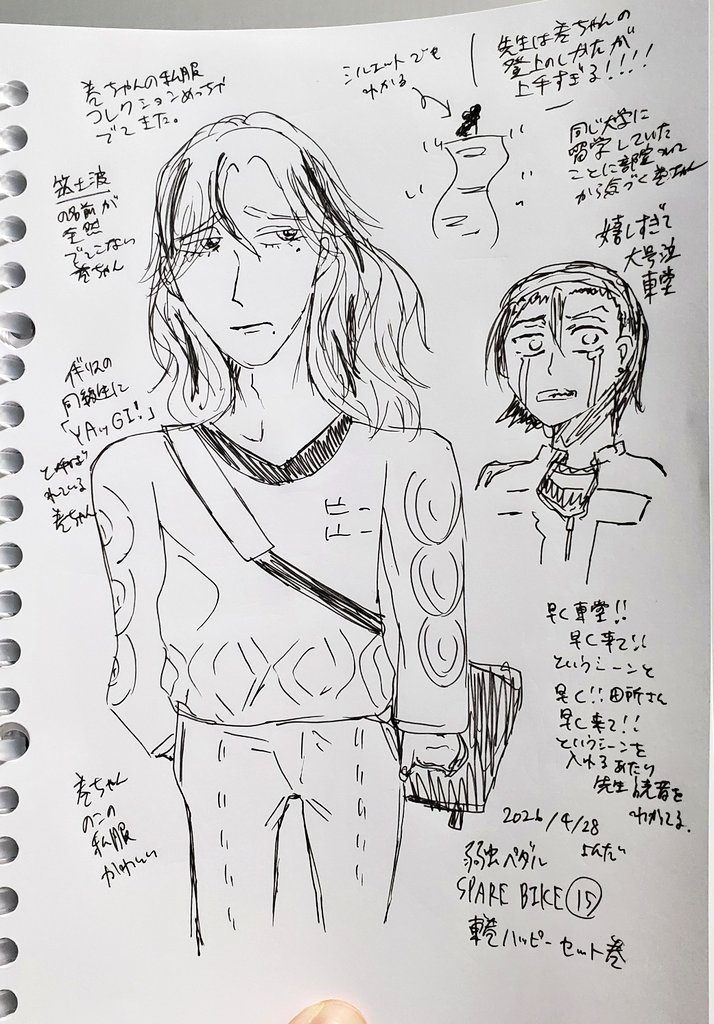 巻ちゃんの私服
コレクションめっちゃ
でてきた。
シルエットでも
わかる
先生は巻ちゃんの
登上のしかたが
上手すぎる!!!!
同じ大学に
留学していた
ことに部室
から気づく巻ちゃん
筑士波
の名前が
全然
でてこない
巻ちゃん
嬉しすぎて
大号泣
東堂
イギリスの
同級生に
「YAッGI!」
と呼ば
れている
巻ちゃん
早く東堂!!
早く来て!!
というシーンと
早く!!田所さん
早く来て!!
というシーンを
入れるあたり
先生読者を
わかってる。
巻ちゃん
のこの
私服
かわいい
2026/4/28
よんだ
弱虫ペダル
SPARE BIKE ⑮
東巻ハッピーセット巻